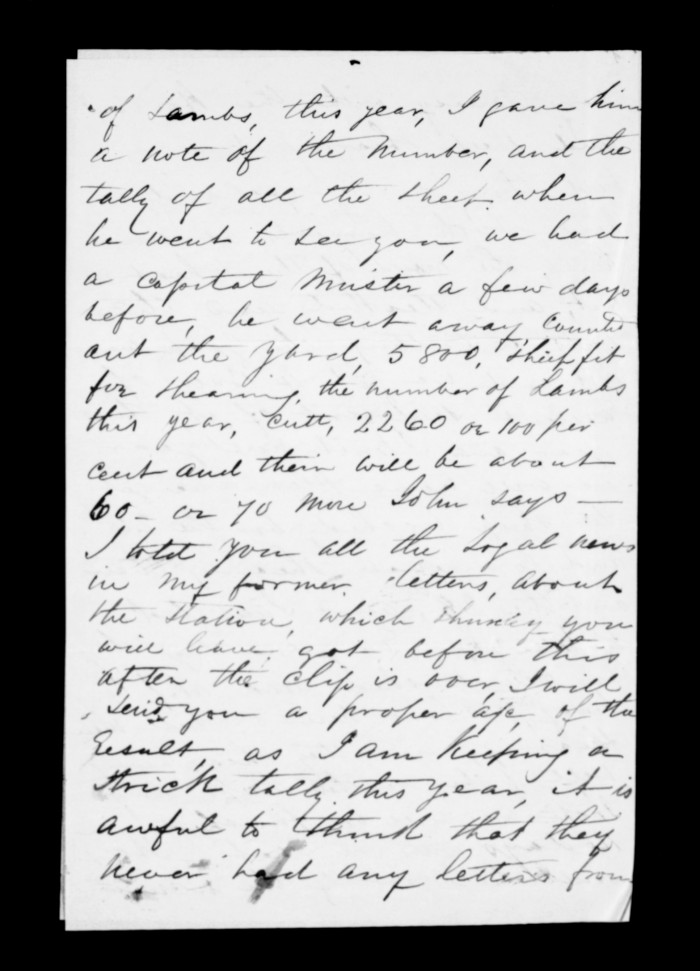 of Lambs, this year, I gave him
a note of the number, and the
tally of all the sheep when
he went to see you, we had
a capital muster a few days
before, he went away, counted
out the yard, 5800, sheep fit
for shearing, the number of Lambs
this year, cutt, 2260 or 100 per
cent and their will be about
60 - or 70 more John says —
I told you all the Logal news
in my former letters, about
the station, which you
will have got before this
after the clip is over, I will
send you a proper a/c, of the
Result, as I am Keeping a
strick tally this year, it is
awful to think that they
never had any letters from